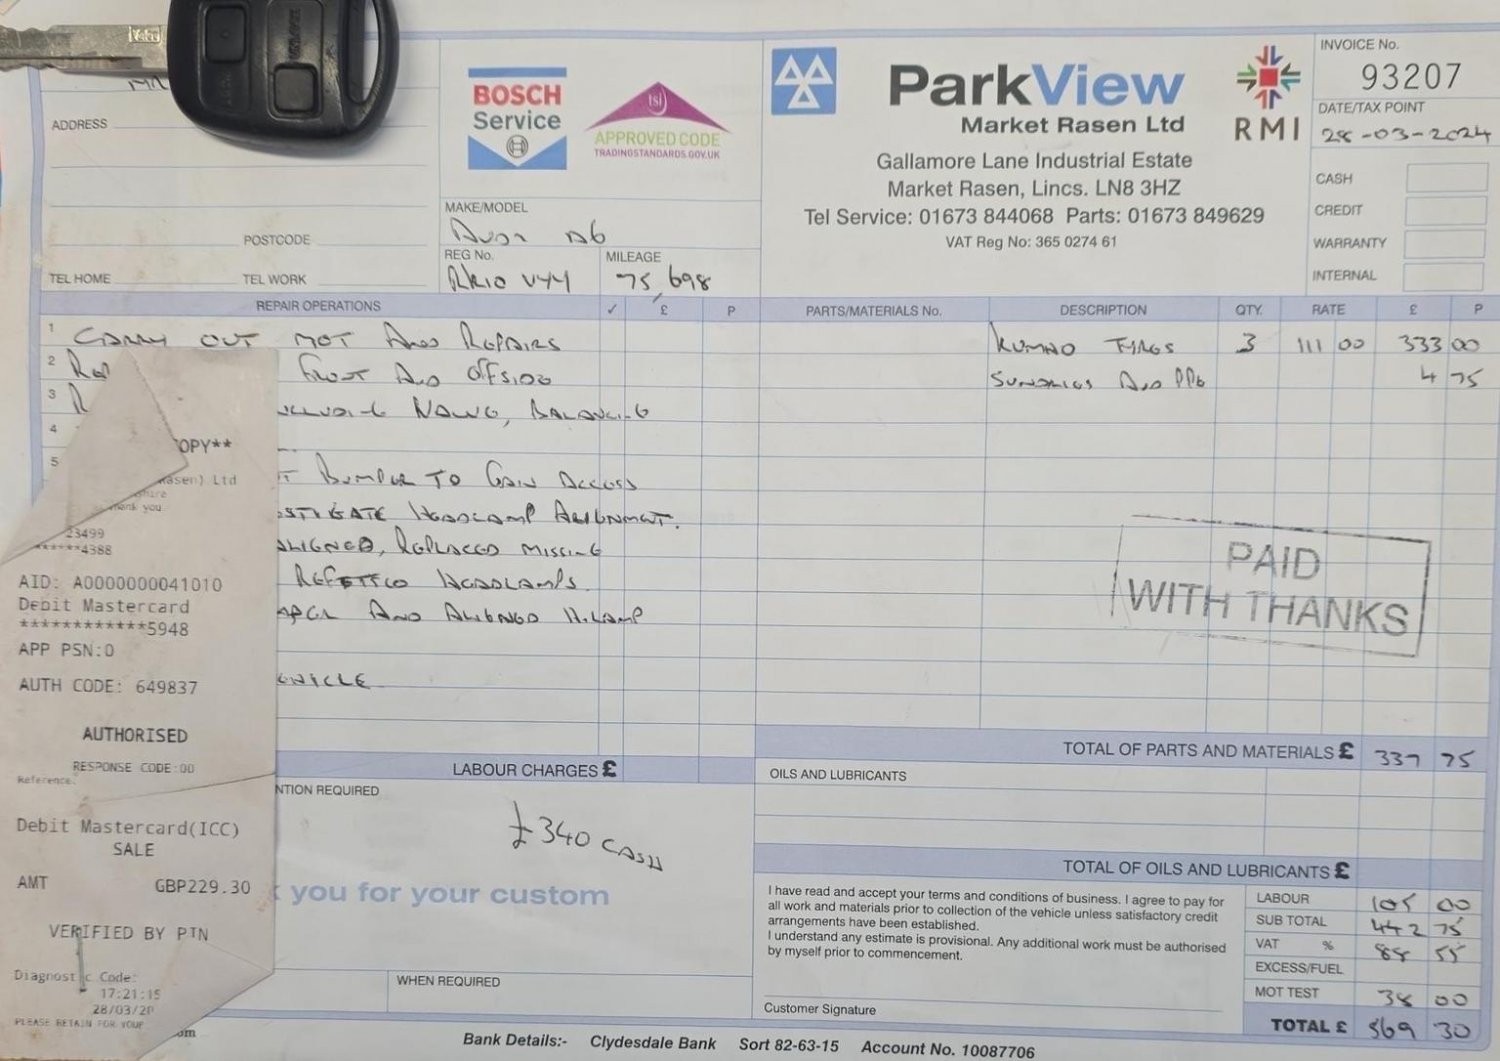 BOSCH
Service
tsi
APPROVED CODE
TRADINGSTANDARDS.GOV.UK
ParkView
Market Rasen Ltd
RMI
Gallamore Lane Industrial Estate
Market Rasen, Lincs. LN8 3HZ
Tel Service: 01673 844068 Parts: 01673 849629
VAT Reg No: 365 0274 61
INVOICE No.
93207
DATE/TAX POINT
28-03-2024
CASH
CREDIT
WARRANTY
INTERNAL
ADDRESS
POSTCODE
TEL HOME
TEL WORK
MAKE/MODEL
AUDI A6
REG No.
MILEAGE
75,698
REPAIR OPERATIONS ✓ £ P
PARTS/MATERIALS No. DESCRIPTION QTY. RATE £ P
1 CARRY OUT MOT AND REPAIRS
2 FRONT AND OFFSIDE
3 BALANCING
4
5 BUMPER TO GAIN ACCESS
HEADLAMP ALIGNMENT.
ALIGNED, REPLACED MISSING
REFITTED HEADLAMPS.
AND ALIGNED H.LAMP
KUMHO TYRES 3 111 00 333 00
SUNDRIES AND PPE 4 75
PAID
WITH THANKS
TOTAL OF PARTS AND MATERIALS £ 337 75
LABOUR CHARGES £
NTION REQUIRED
£340 CASH
you for your custom
WHEN REQUIRED
OILS AND LUBRICANTS
TOTAL OF OILS AND LUBRICANTS £
I have read and accept your terms and conditions of business. I agree to pay for
all work and materials prior to collection of the vehicle unless satisfactory credit
arrangements have been established.
I understand any estimate is provisional. Any additional work must be authorised
by myself prior to commencement.
Customer Signature
LABOUR 105 00
SUB TOTAL 442 75
VAT % 88 55
EXCESS/FUEL
MOT TEST 38 00
TOTAL £ 569 30
Bank Details:- Clydesdale Bank Sort 82-63-15 Account No. 10087706
OPY**
asen) Ltd
hank you
23499
******4388
AID: A0000000041010
Debit Mastercard
************5948
APP PSN:0
AUTH CODE: 649837
AUTHORISED
RESPONSE CODE:00
Reference:
Debit Mastercard(ICC)
SALE
AMT GBP229.30
VERIFIED BY PIN
Diagnostic Code:
17:21:15
28/03/20
PLEASE RETAIN FOR YOUR
om